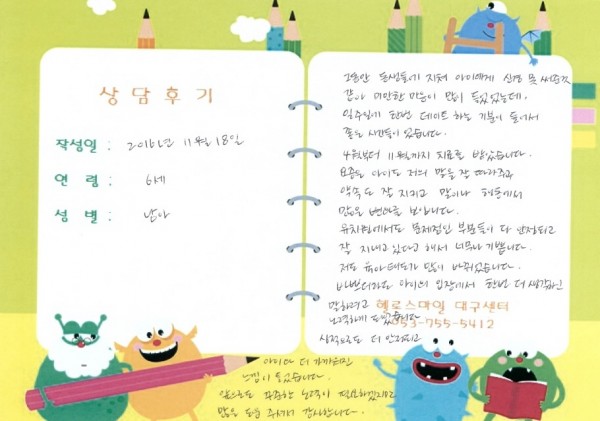 상담후기
작성일 : 2016년 11월 18일
연 령 : 6세
성 별 : 남아
그동안 동생들에 지쳐 아이에게 신경 못 써준것
같아 미안한 마음이 많이 들었었는데,
일주일에 한번 데이트 하는 기분이 들어서
좋은 시간들이었습니다.
4월부터 11월까지 치료를 받았습니다.
요즘은 아이도 저의 말을 잘 따라주고
약속도 잘 지키고 말이나 행동에서
많은 변화를 보입니다.
유치원에서도 문제적인 부분들이 다 안정되고
잘 지내고 있다고 해서 너무나 기쁩니다.
저도 육아태도가 많이 바뀌었습니다.
바쁘더라도 아이의 입장에서 한번 더 생각하고
말하려고
헬로스마일 대구센터
노력하게 되었습니다
053-755-5412
심적으로 더 안정되고
아이와 더 가까워진
느낌이 들었습니다.
앞으로도 꾸준한 노력이 필요하겠지만
많은 도움 주셔서 감사합니다.